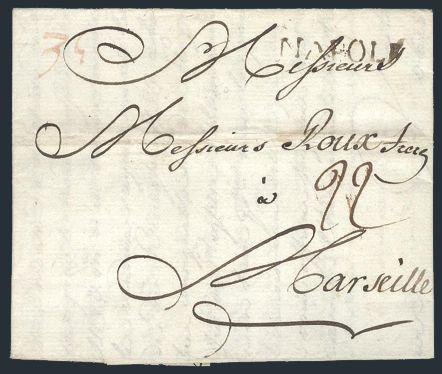 34
NAPOLI
Messieurs
Messieurs Roux freres
à 22
Marseille